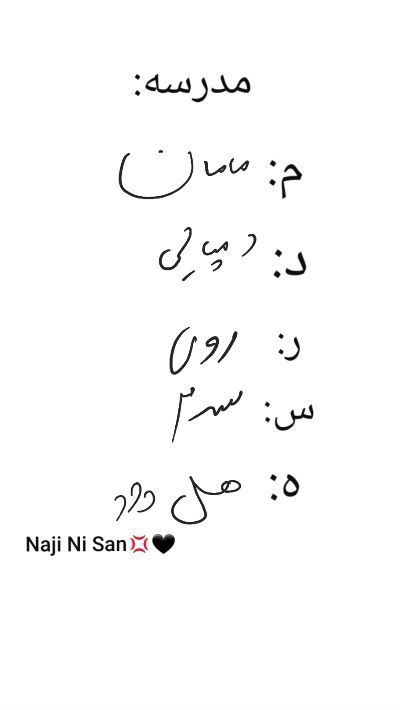 مدرسه:
م: مامان
د: دمپایی
ر: روی
س: سرم
ه: هل داد
Naji Ni San💢🖤